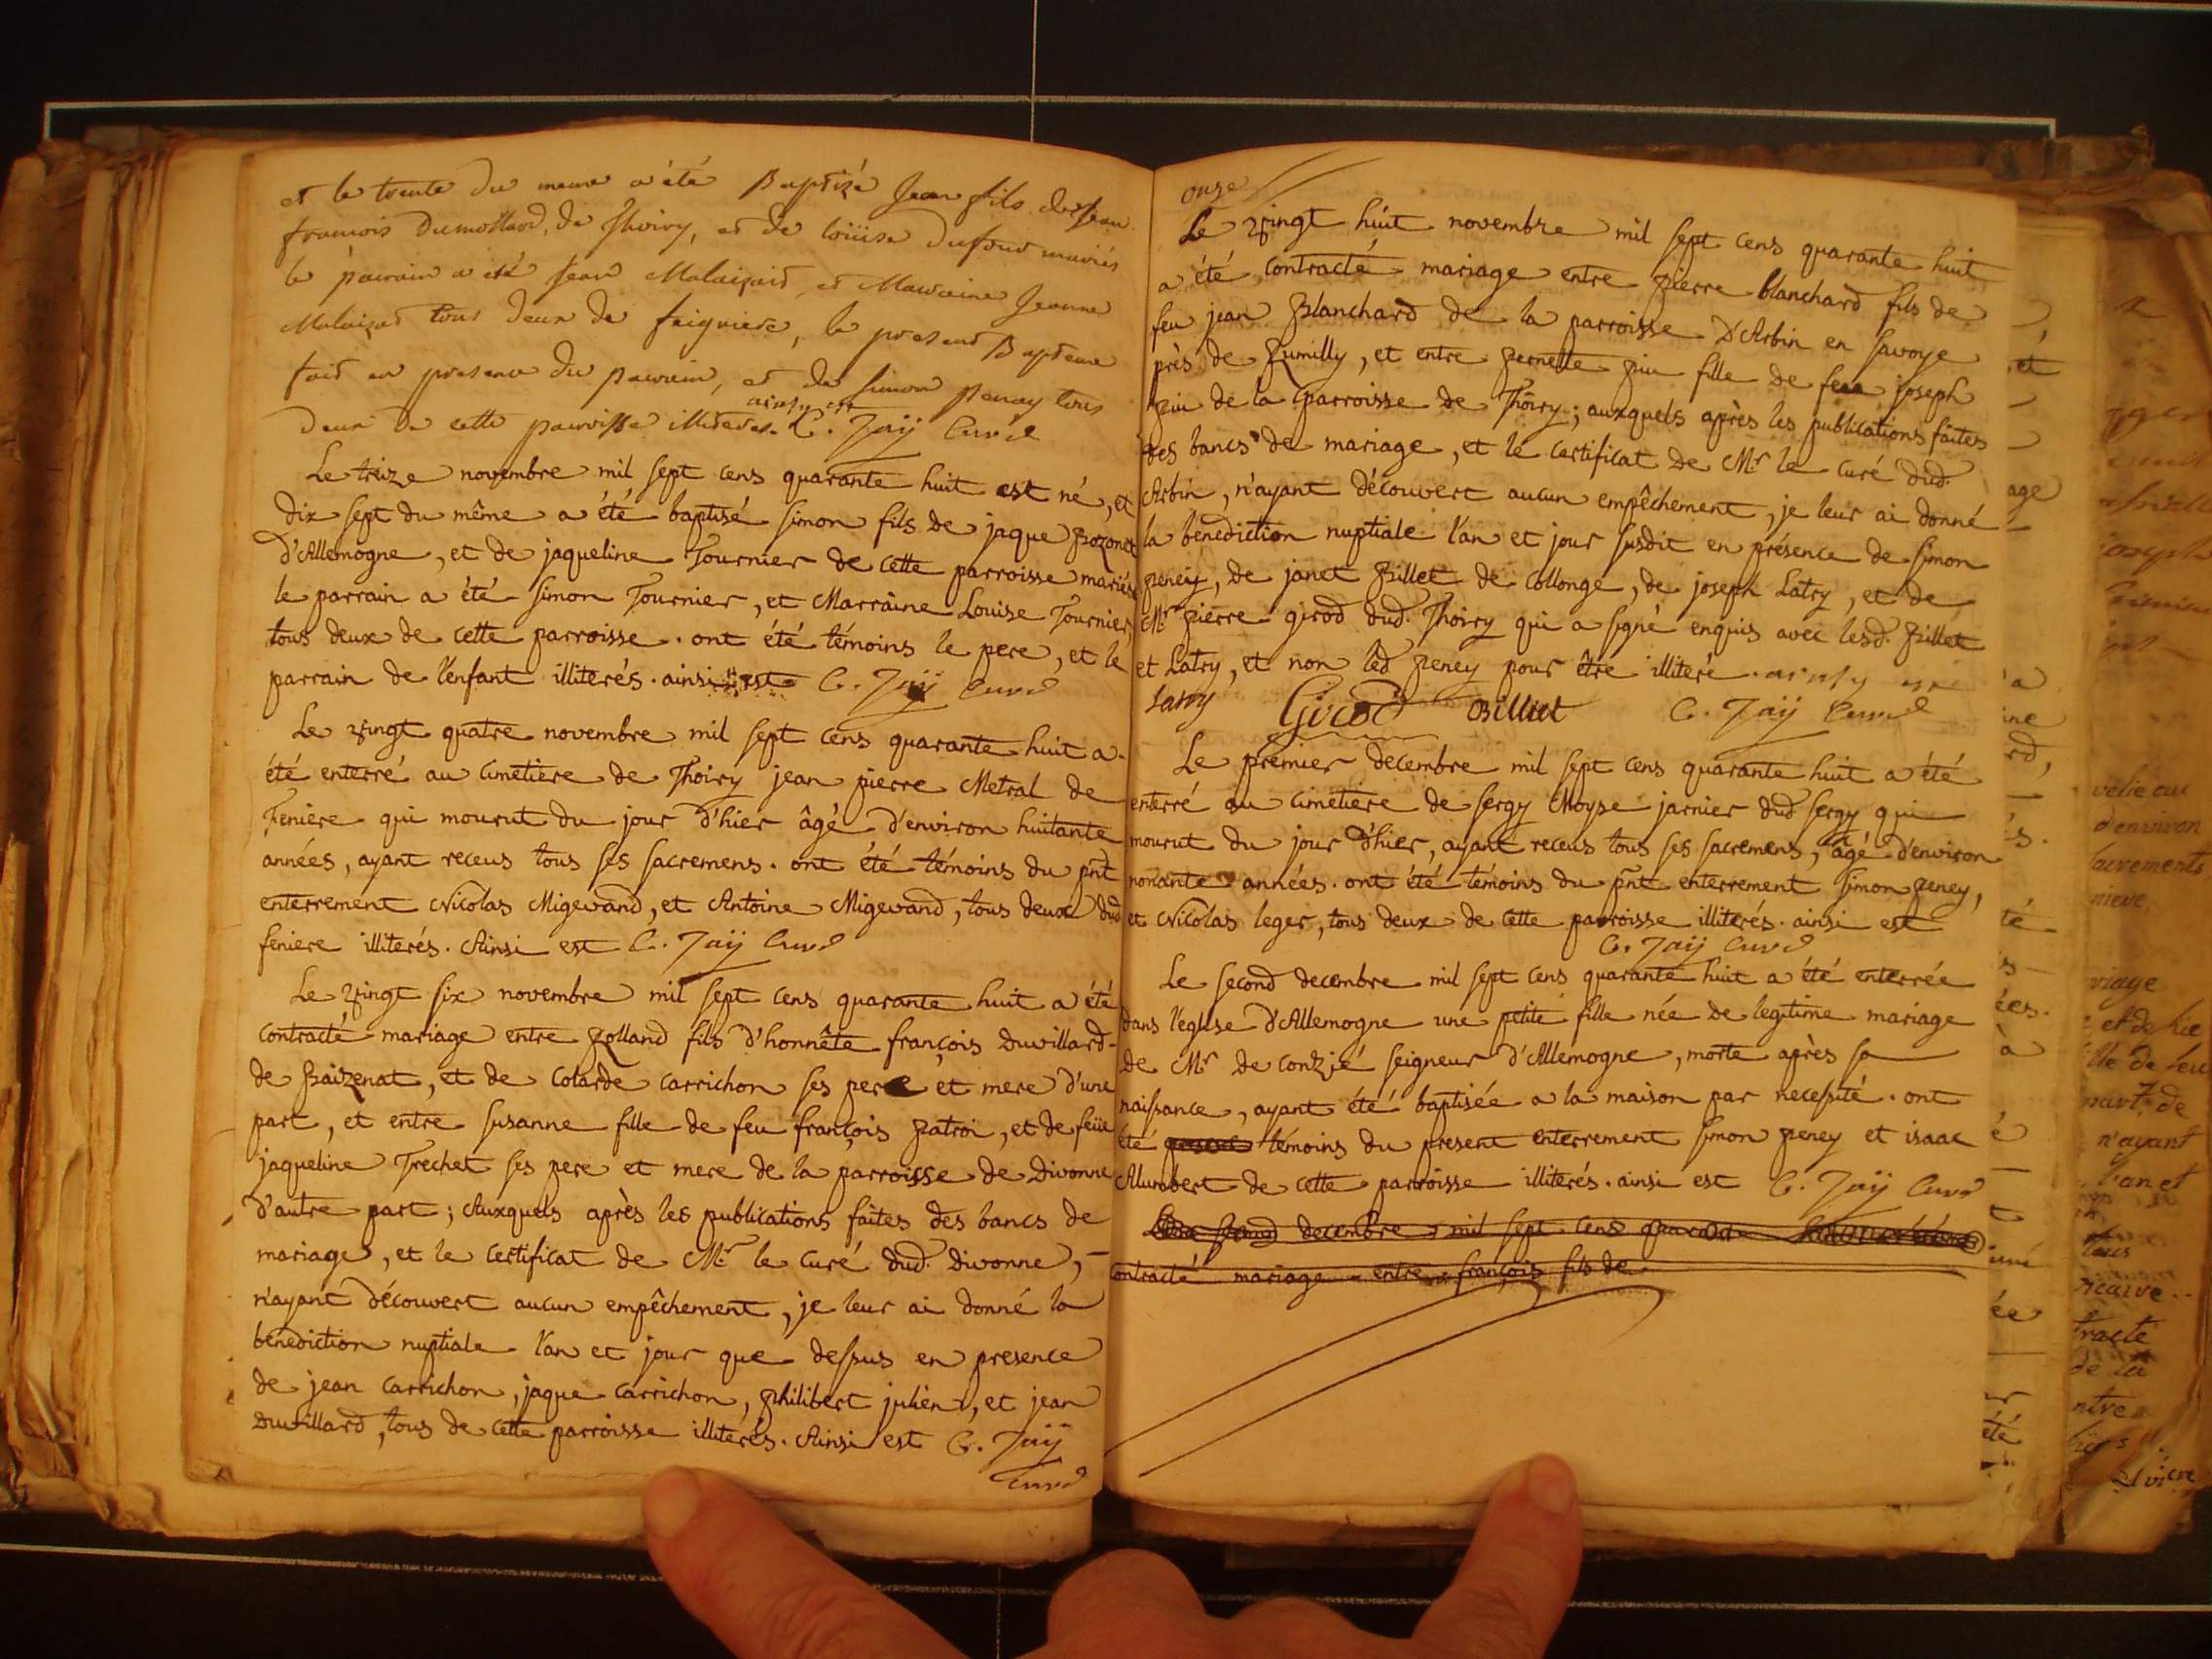 et le trente du meme a été Baptizé Jean fils de Jean
francois Dumollard, de Thoiry, et de loüise Dufour mariés
le pairain a été Jean Malaizard, et Maraine Jeanne
Malaizard tous deux de faigniere, le present Bapteme
fait en presence du parrein, et de simon penay tous
deux de cette parroisse illiterés. ainsy est C. Jaÿ Curé
Le treize novembre mil sept cens quarante huit est né, et
dix sept du même a été baptisé simon fils de jaque Bozonet
d'Allemogne, et de jaqueline Tournier de cette parroisse mariés
le parrain a été simon Tournier, et Marraine Louise Tournier,
tous deux de cette parroisse. ont été témoins le pere, et le
parrain de l'enfant illiterés. ainsi est C. Jaÿ Curé
Le vingt quatre novembre mil sept cens quarante huit a
été enterré au cimetiere de Thoiry jean pierre Metral de
Feniere qui mourut du jour d'hier âgé d'environ huitante
années, ayant receus tous ses sacremens. ont été témoins du pñt
enterrement Nicolas Migevand, et Antoine Migevand, tous deux dud.
feniere illiterés. Ainsi est C. Jaÿ Curé
Le vingt six novembre mil sept cens quarante huit a été
contracté mariage entre Rolland fils d'honnête françois Duvillard
de Baizenat, et de Colarde Carrichon ses pere et mere d'une
part, et entre Susanne fille de feu françois Patroi, et de feüe
jaqueline Trechet ses pere et mere de la parroisse de Divonne
d'autre part; Auxquels après les publications faites des bancs de
mariage, et le certificat de Mr. le Curé dud. Divonne,
n'ayant découvert aucun empêchement, je leur ai donné la
benediction nuptiale l'an et jour que dessus en presence
de jean Carrichon, jaque Carrichon, philibert julien, et jean
Duvillard, tous de cette parroisse illiterés. Ainsi est C. Jaÿ
Curé
onze
Le vingt huit novembre mil sept cens quarante huit
a été contracté mariage entre pierre blanchard fils de
feu jean Blanchard de la parroisse D'Arbin en savoye
près de Rumilly, et entre pernette piu fille de feu joseph
piu de la parroisse de Thoiry; auxquels après les publications faites
des bancs de mariage, et le certificat de Mr. le curé dud.
Arbin, n'ayant découvert aucun empêchement, je leur ai donné
la benediction nuptiale l'an et jour susdit en présence de simon
peney, de janet Billet de Collonge, de joseph Latry, et de
Mr. pierre girod dud. Thoiry qui a signé enquis avec lesd. Billet
et Latry, et non led peney pour être illiteré. ainsy est
Latry Girod Billiet C. Jaÿ Curé
Le premier decembre mil sept cens quarante huit a été
enterré au cimetiere de sergy Moyse jarnier dud sergy qui
mourut du jour d'hier, ayant receus tous ses sacremens, âgé d'environ
nonante années. ont été témoins du pñt enterrement simon peney,
et Nicolas leger, tous deux de cette parroisse illiterés. ainsi est
C. Jaÿ Curé
Le second decembre mil sept cens quarante huit a été enterrée
dans l'eglise d'Allemogne une petite fille née de legitime mariage
de Mr. de conzié seigneur d'Allemogne, morte après sa
naissance, ayant été baptisée a la maison par necessité. ont
été present témoins du present enterrement simon peney et isaac
Alumbert de cette parroisse illiterés. ainsi est C. Jaÿ Curé
second decembre mil sept cens quarante
contracté mariage entre françois fils de